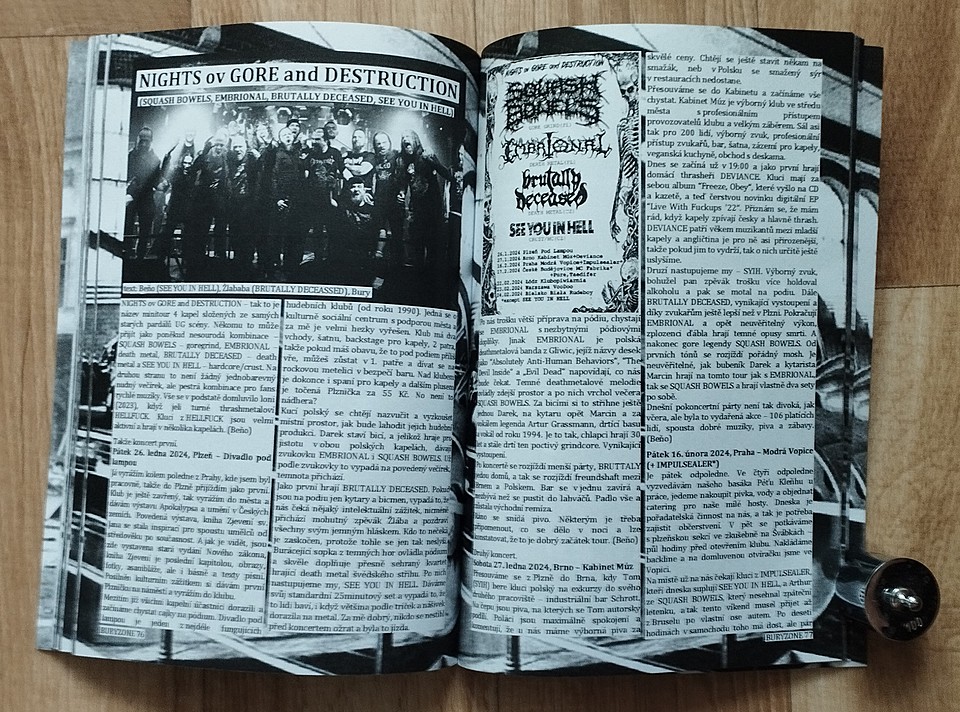 NIGHTS ov GORE and DESTRUCTION
(SQUASH BOWELS, EMBRIONAL, BRUTALLY DECEASED, SEE YOU IN HELL)
text: Beňo (SEE YOU IN HELL), Žlababa (BRUTALLY DECEASSED), Bury
NIGHTS ov GORE and DESTRUCTION – tak to je
název minitour 4 kapel složených ze samých
starých pardálů UG scény. Někomu to může
přijít jako poněkud nesourodá kombinace –
SQUASH BOWELS – goregrind, EMBRIONAL –
death metal, BRUTALLY DECEASED – death
metal a SEE YOU IN HELL – hardcore/crust. Na
druhou stranu to není žádný jednobarevný
nudný večírek, ale pestrá kombinace pro fans
rychlé muziky. Vše se v podstatě domluvilo loni
(2023), když jeli turné thrashmetaloví
HELLFUCK. Kluci z HELLFUCK jsou velmi
aktivní a hrají v několika kapelách. (Beňo)
Takže koncert první.
Pátek 26. ledna 2024, Plzeň – Divadlo pod
lampou
Já vyrážím kolem poledne z Prahy, kde jsem byl
pracovně, takže do Plzně přijíždím jako první.
Klub je ještě zavřený, tak vyrážím do města a
dávám výstavu Apokalypsa a umění v Českých
zemích. Povedená výstava, kniha Zjevení sv.
Jana se stala inspirací pro spoustu umělců od
středověku po současnost. A jak je vidět, jsou
zde vystavena stará vydání Nového zákona,
kniha Zjevení je poslední kapitolou, obrazy,
fotky, asambláže, ale i básně a texty písní.
Posilněn kulturním zážitkem si dávám první
Plzničku na náměstí a vyrážím do klubu.
Mezitím již všechny kapelní účastníci dorazili a
začínáme chystat cajky na pódium. Divadlo pod
lampou je jeden z nejdéle fungujících
BURYZONE 76
hudebních klubů (od roku 1990). Jedná se o
kulturně sociální centrum s podporou města a
za mě je velmi hezky vyřešen. Klub má dva
vchody, šatnu, backstage pro kapely, 2 patra,
takže pokud máš obavu, že to pod podiem přijde
vře, můžeš zůstat v 1. patře a dívat se na
rockovou metelici v bezpečí baru. Nad klubem
je dokonce i spaní pro kapely a dalším plusem
je točená Plznička za 55 Kč. No není to
nádhera?
Kucí polský se chtějí nazvučit a vyzkoušet
místní prostor, jak bude lahodit jejich hudební
produkci. Darek staví bicí, a jelikož hraje pro
jistotu v obou polských kapelách, dávají
zvukovku EMBRIONAL i SQUASH BOWELS. Už
podle zvukovky to vypadá na povedený večírek,
temnota přichází.
Jako první hrají BRUTALLY DECEASED. Pokud
jsou na podiu jen kytary a bicmen, vypadá to, že
nás čeká nějaký intelektuální zážitek, nicméně
přichází mohutný zpěvák Žlába a pozdraví
všechny svým jemným hláskem. Kdo to nečekal,
je zaskočen, protože tohle je sen tak neslyší.
Burácející sopka z temných hor ovládla pódium
a skvěle doplňuje přesně sehraný kvartet
hrající death metal švédského střihu. Po nich
nastupujeme my, SEE YOU IN HELL. Dáváme
svůj standardní 25minutový set a vypadá to, že
to lidi baví, i když většina podle triček a nášivek
dorazila na metal. Za mě dobrý, nikdo se nestihl
před koncertem ožrat a byla to jízda.
NIGHTS OV GORE AND DESTRUCTION
SQUASH
BOWELS
GORE GRIND(PL)
EMBRIONAL
DEATH METAL(PL)
brutally
deceased
DEATH METAL(CZ)
SEE YOU IN HELL
CRUST/HC(CZ)
26.1.2024 Plzeň Pod Lampou
27.1.2024 Brno Kabinet Múz+Deviance
16.2.2024 Praha Modrá Vopice+Impulsealer*
17.2.2024 České Budějovice MC Fabrika*
22.02.2024 Łódź Klubopiwiarnia
23.02.2024 Warszawa VooDoo
24.02.2024 Bielsko Biała Rudeboy
*except SEE YOU IN HELL
Po nás trošku větší příprava na pódiu, chystají
se EMBRIONAL s nezbytnými pódiovými
doplňky. Jinak EMBRIONAL je polská
deathmetalová banda z Gliwic, jejíž názvy desek
jako "Absolutely Anti-Human Behaviors", "The
Devil Inside" a „Evil Dead" napovídají, co nás
bude čekat. Temné deathmetalové melodie
ovládly zdejší prostor a po nich vrchol večera
SQUASH BOWELS. Za bicími si to střihne ještě
jednou Darek, na kytaru opět Marcin a za
vokálem legenda Artur Grassmann, drtící basu
a vokál od roku 1994. Je to tak, chlapci hrají 30
let a stále drtí ten poctivý grindcore. Vynikající
vystoupení.
Po koncertě se rozjíždí menší párty, BRUTTALY
jedou domů, a tak se rozjíždí freundshaft mezi
Brnem a Polskem. Bar se v jednu zavírá a
nezbývá než se pustit do lahváčů. Padlo vše a
nastala východní remíza.
Ráno se snídá pivo. Některým je třeba
připomenout, co se dělo v noci a lze
konstatovat, že to je dobrý začátek tour. (Beňo)
Druhý koncert.
Sobota 27. ledna 2024, Brno – Kabinet Múz
Přesouváme se z Plzně do Brna, kdy Tom
(SYIH) bere kluci polský na exkurzi do svého
druhého pracoviště – industriální bar Schrott.
Na čepu jsou piva, na kterých se Tom autorsky
podílí. Poláci jsou maximálně spokojeni a
komentují, že u nás máme výborná piva za
skvělé ceny. Chtějí se ještě stavit někam na
smažák, neb v Polsku se smažený sýr
v restauracích nedostane.
Přesouváme se do Kabinetu a začínáme vše
chystat. Kabinet Múz je výborný klub ve středu
města s profesionálním přístupem
provozovatelů klubu a velkým záběrem. Sál asi
tak pro 200 lidí, výborný zvuk, profesionální
přístup zvukařů, bar, šatna, zázemí pro kapely,
veganská kuchyně, obchod s deskama.
Dnes se začíná už v 19:00 a jako první hrají
domácí thrasheři DEVIANCE. Kluci mají za
sebou album "Freeze, Obey", které vyšlo na CD
a kazetě, a teď čerstvou novinku digitální EP
"Live With Fuckups '22". Přiznám se, že mám
rád, když kapely zpívají česky a hlavně thrash.
DEVIANCE patří věkem muzikantů mezi mladší
kapely a angličtina je pro ně asi přirozenější,
takže pokud jim to vydrží, tak o nich určitě ještě
uslyšíme.
Druzí nastupujeme my – SYIH. Výborný zvuk,
bohužel pan zpěvák trošku více holdoval
alkoholu a pak se motal na podiu. Dále
BRUTALLY DECEASED, vynikající vystoupení a
díky zvukařům ještě lepší než v Plzni. Pokračují
EMBRIONAL a opět neuvěřitelný výkon,
zplozenci ďábla hrají temné opusy smrti. A
nakonec gore legendy SQUASH BOWELS. Od
prvních tónů se rozjíždí pořádný mosh. Je
neuvěřitelné, jak bubeník Darek a kytarista
Marcin hrají na tomto tour jak s EMBRIONAL,
tak se SQUASH BOWELS a hrají vlastně dva sety
po sobě.
Dnešní pokoncertní párty není tak divoká, jak
včera, ale byla to vydařená akce – 106 platících
lidí, spousta dobré muziky, piva a zábavy.
(Beňo)
Pátek 16. února 2024, Praha – Modrá Vopice
(+ IMPULSEALER*)
Je pátek odpoledne. Ve čtyři odpoledne
vyzvedávám našeho basáka Péťu Kleňhu u
práce, jedeme nakoupit pivka, vody a objednat
catering pro naše milé hosty. Dneska je
pořadatelská činnost na nás, a tak je potřeba
zajistit občerstvení. V pět se potkáváme
s plzeňskou sekcí ve zkušebně na Švábkách a
půl hodiny před otevřením klubu. Nakládáme
backline a na domluvenou otvíračku jsme ve
Vopici.
Na místě už na nás čekají kluci z IMPULSEALER,
kteří dneska suplují SEE YOU IN HELL, a Arthur
ze SQUASH BOWELS, který nesehnal zpáteční
letenku, a tak tento víkend musel přijet až
z Bruselu po vlastní ose autem. Po deseti
hodinách v samochodu toho má dost, ale pár
BURYZONE 77